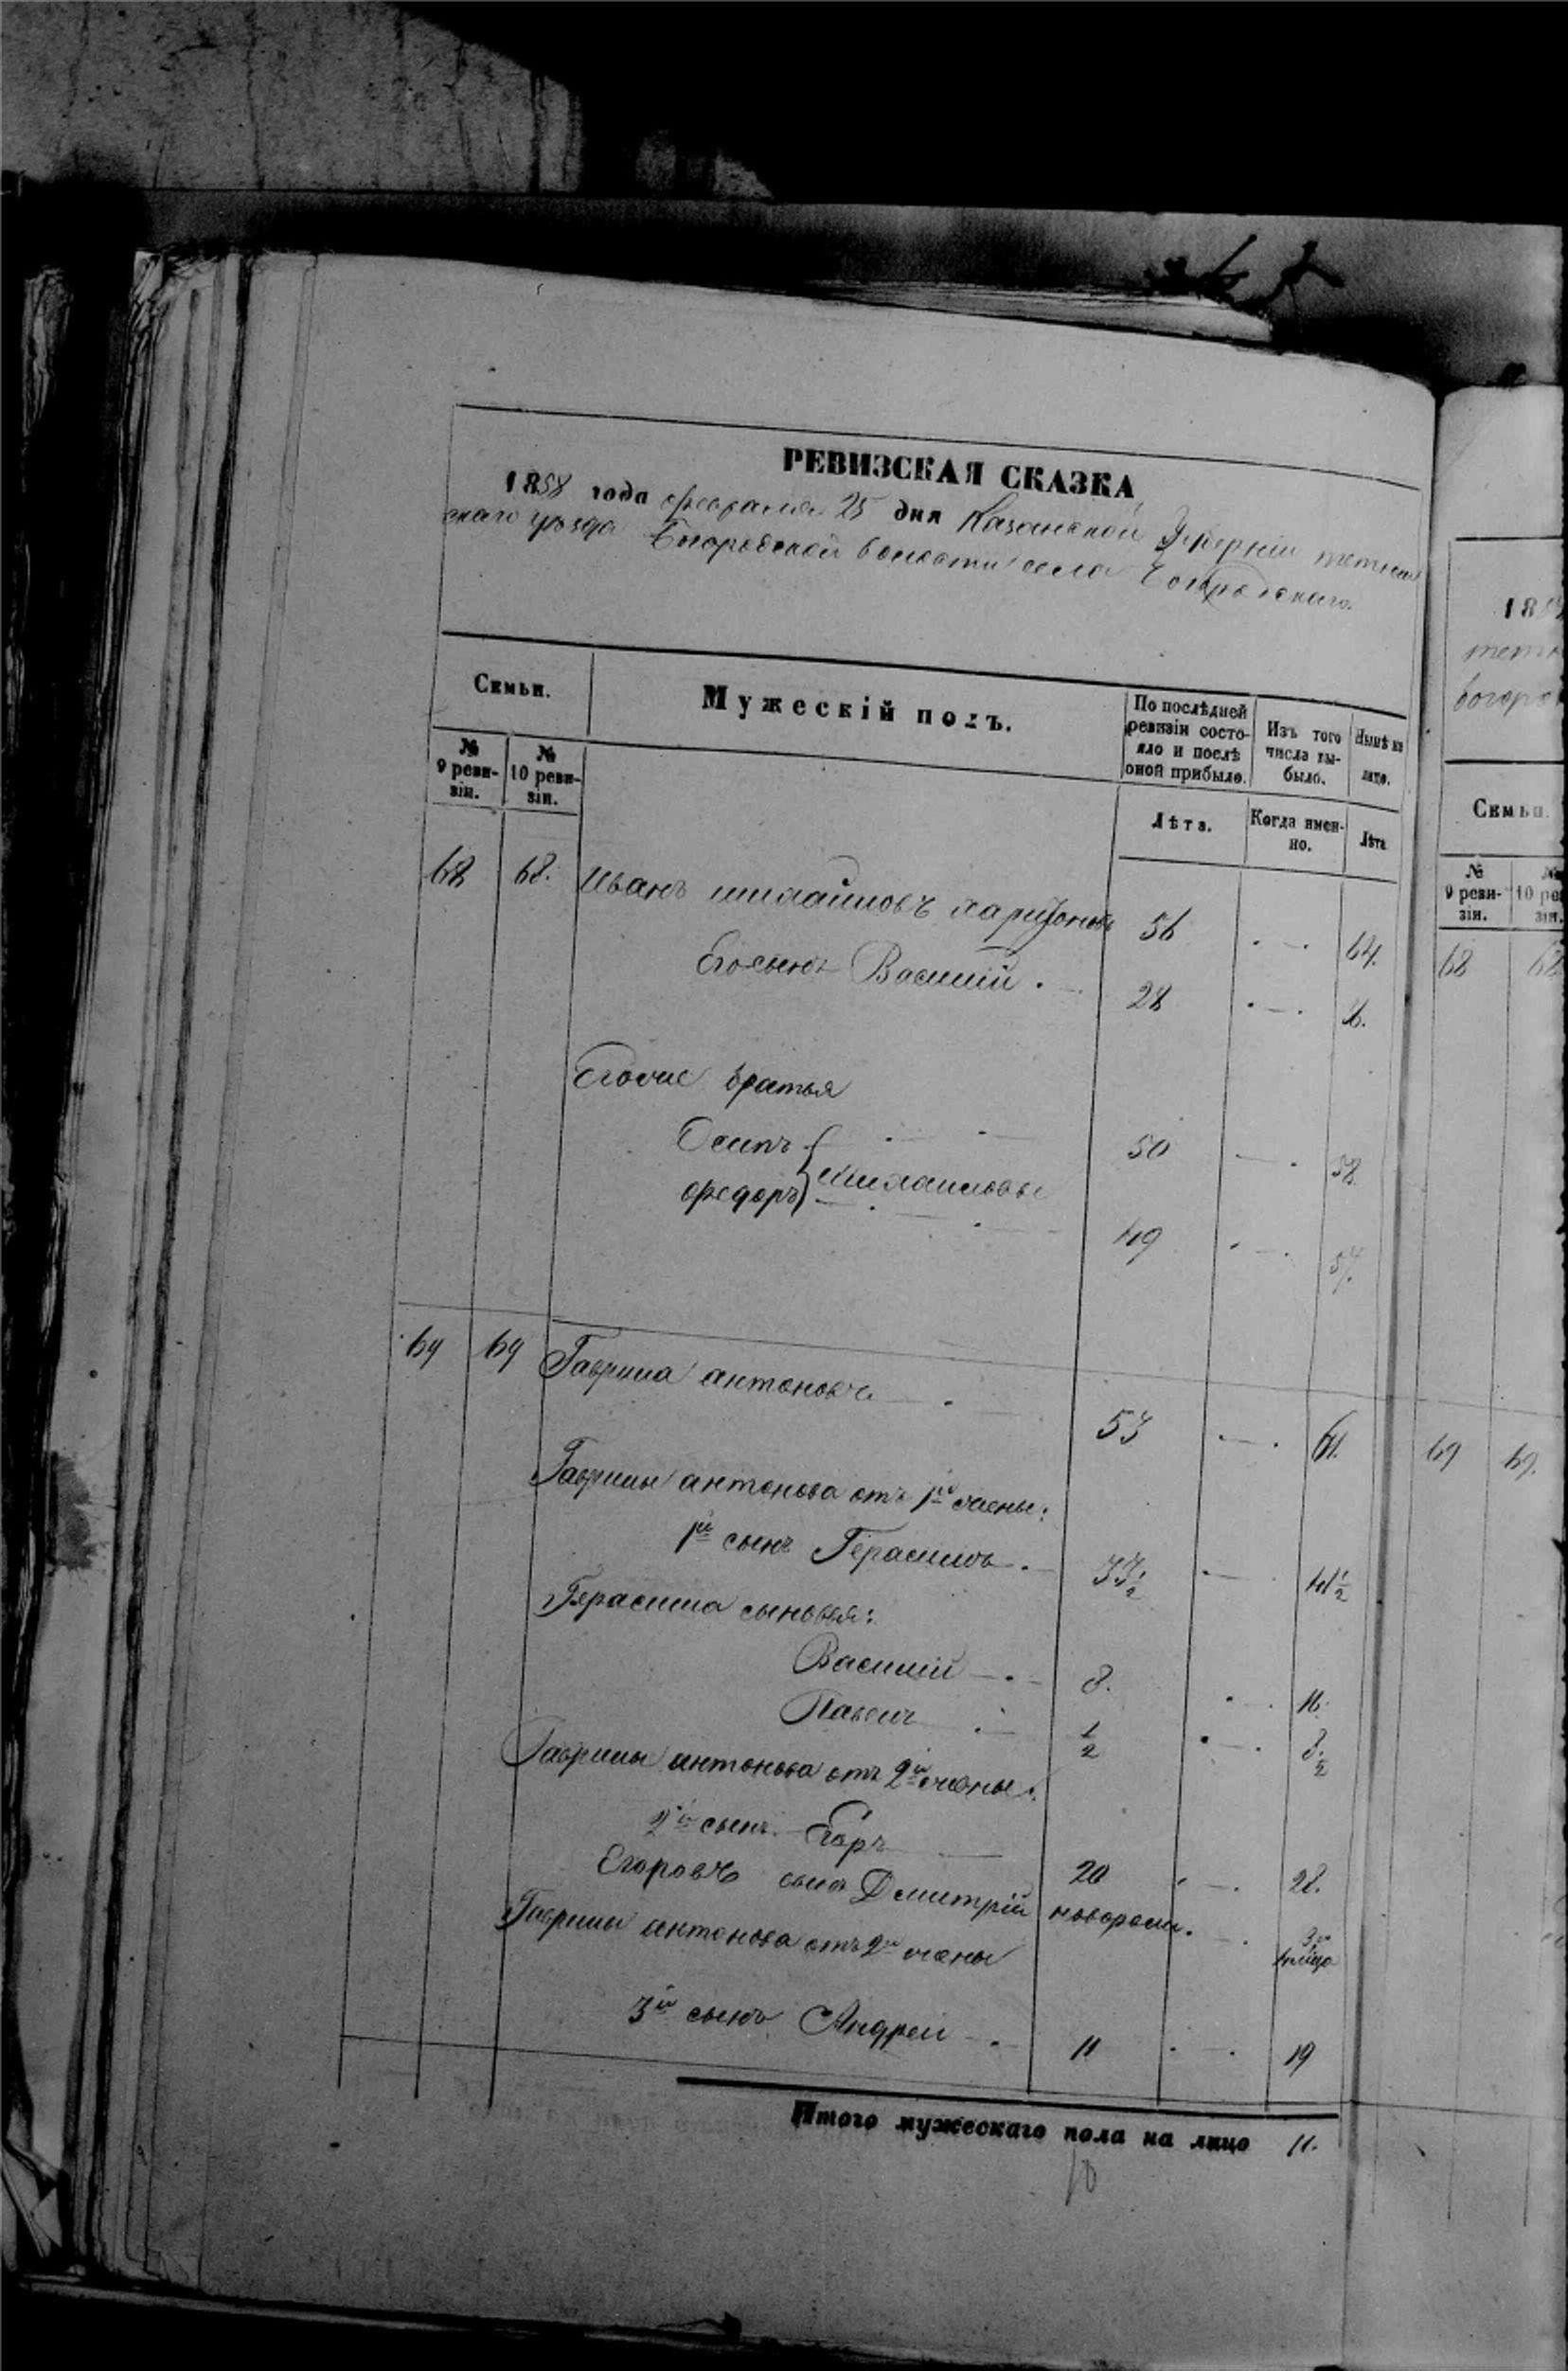 РЕВИЗСКАЯ СКАЗКА
1858 года февраля 25 дня Казанской Губерніи тетюш
скаго уезда Богородской волости села Богородскаго
Семьи.
Мужескій полъ.
По послѣдней ревизіи состо-
яло и послѣ
оной прибыло.
Изъ того
числа вы-
было.
Нынѣ на
лицо.
№
9 реви-
зіи.
№
10 реви-
зіи.
Лѣта.
Когда имен-
но.
Лѣта
68 68. Иванъ михайловъ харитоновъ 56 64.
Его сынъ Василій. 28
Его же братья
Осипъ 50 58.
Михайловы
федоръ 49 57.
69 69 Гаврила антоновъ 53 61.
Гаврилы антонова от 1й жены:
1й сынъ Герасимъ. 33 1/2 41 1/2
Герасима сыновья:
Василій 8. 16.
Павелъ 1/2 8 1/2
Гаврилы антонова от 2й жены.
2й сынъ Егоръ 20 28.
Егоровъ сынъ Дмитрій
Гаврилы антонова от 2й жены
3й сынъ Андрей 11 19
Итого мужескаго пола на лицо 11.
10
185
тетю
богоро
Семьи.
№
9 реви-
зіи.
№
10 ре
зіи.
68 68
69 69.